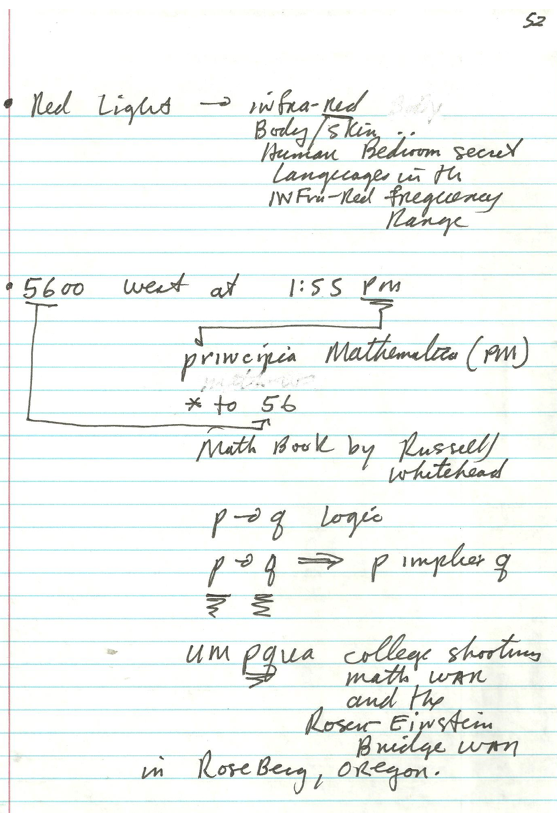 52
• Red Light → infra-red
Body/skin ..
Human Bedroom secret
Languages in th
INFra-Red frequency
Range
• 5600 west at 1:55 PM
principia Mathematica (PM)
* to 56
Math Book by Russell/
Whitehead
p → q Logic
p → q ⇒ p implies q
UMpqua college shooting
math WAR
and the
Rosen-Einstein
Bridge WAR
in RoseBerg, Oregon.